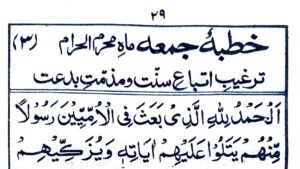 ۲۹
خطبۂ جمعه ماہ محرم الحرام (۳)
ترغیب اتباع سنّت ومذمّت بدعت
اَلْحَمْدُ لِلّٰهِ الَّذِیْ بَعَثَ فِی الْاُمِّیِّیْنَ رَسُوْلًا
مِّنْهُمْ یَتْلُوْا عَلَیْهِمْ اٰیَاتِهٖ وَیُزَکِّیْهِمْ